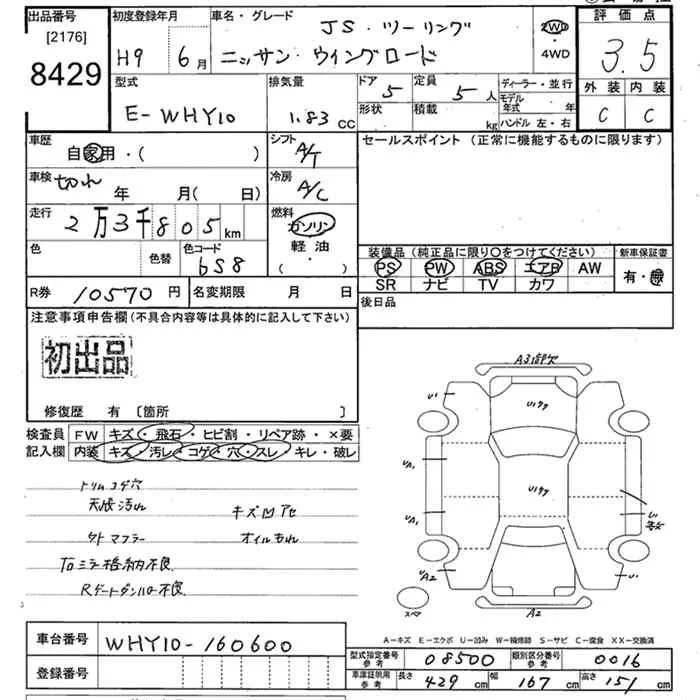 出品番号 初度登録年月 車名・グレード JS・ツーリング 2WD 評価点
[2176] H9 6月 ニッサン・ウイングロード ・4WD 3.5
8429
型式 排気量 ドア 5 定員 5人 ディーラー・並行 外装 内装
E-WHY10 1.83 CC 形状 積載 kg モデル年式 年 C C
ハンドル 左・右
車歴 自家用・( ) シフト A/T セールスポイント (正常に機能するものに限ります)
車検 切れ 年 月(日) 冷房 A/C
走行 2万3千805km 燃料 ガソリン
軽油
( ・ )
色 色替 色コード 6S8 装備品 (純正品に限り○をつけてください) 新車保証書
PS PW ABS エアB AW 有・無
SR ナビ TV カワ
R券 10570円 名変期限 月 日 後日品
注意事項申告欄(不具合内容等は具体的に記入して下さい)
初出品
修復歴 有 [箇所 ]
検査員 FW キズ・飛石・ヒビ割・リペア跡・×要
記入欄 内装 キズ・汚レ・コゲ・穴・スレ・キレ・破レ
トリムコゲ穴
天張汚れ キズ凹アセ
外マフラー オイルもれ
Toミラ格納不良
Rゲートダンパー不良
A3
U1
U1
UA1
UA1
UA2
U1
A2
スペア
A-キズ E-エクボ U-凹み W-補修跡 S-サビ C-腐食 XX-交換済
車台番号 WHY10-160600
登録番号
型式指定番号 参考 08500 類別区分番号 参考 0016
車庫証明用 参考 長さ 429 cm 幅 167 cm 高さ 151 cm